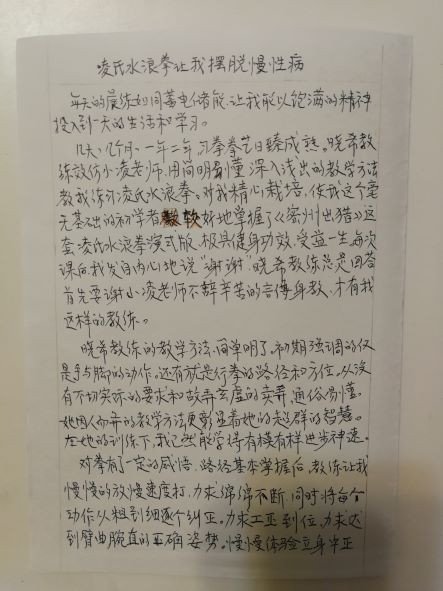 凌氏水浪拳让我摆脱慢性病
每天的晨练如同蓄电储能，让我能以饱满的精神
投入到一天的生活和学习。
几天、几个月、一年二年，习拳拳艺日臻成熟。晓希教
练效仿小凌老师，用简明易懂深入浅出的教学方法
教我练习凌氏水浪拳。对我精心栽培，使我这个毫
无基础的初学者较好地掌握了《密州出猎》这
套凌氏水浪拳演式版，极具健身功效，受益一生。每次
课后我发自内心地说“谢谢”晓希教练总是回答
首先要谢小凌老师不辞辛苦的言传身教，才有我
这样的教练。
晓希教练的教学方法，简单明了，初期强调的仅
是手与脚的动作。还有就是行拳的路径和方位。从没
有不切实际的要求和故弄玄虚的卖弄，通俗易懂。
她因人而异的教学方法更彰显着她的超群的智慧。
在她的训练下，我已然能学得有模有样进步神速。
对拳有了一定的感悟，路径基本掌握后，教练让我
慢慢的放慢速度打，力求绵绵不断，同时将每个
动作从粗到细逐个纠正。力求工正到位，力求达
到臂曲腕直的正确姿势。慢慢体验立身中正